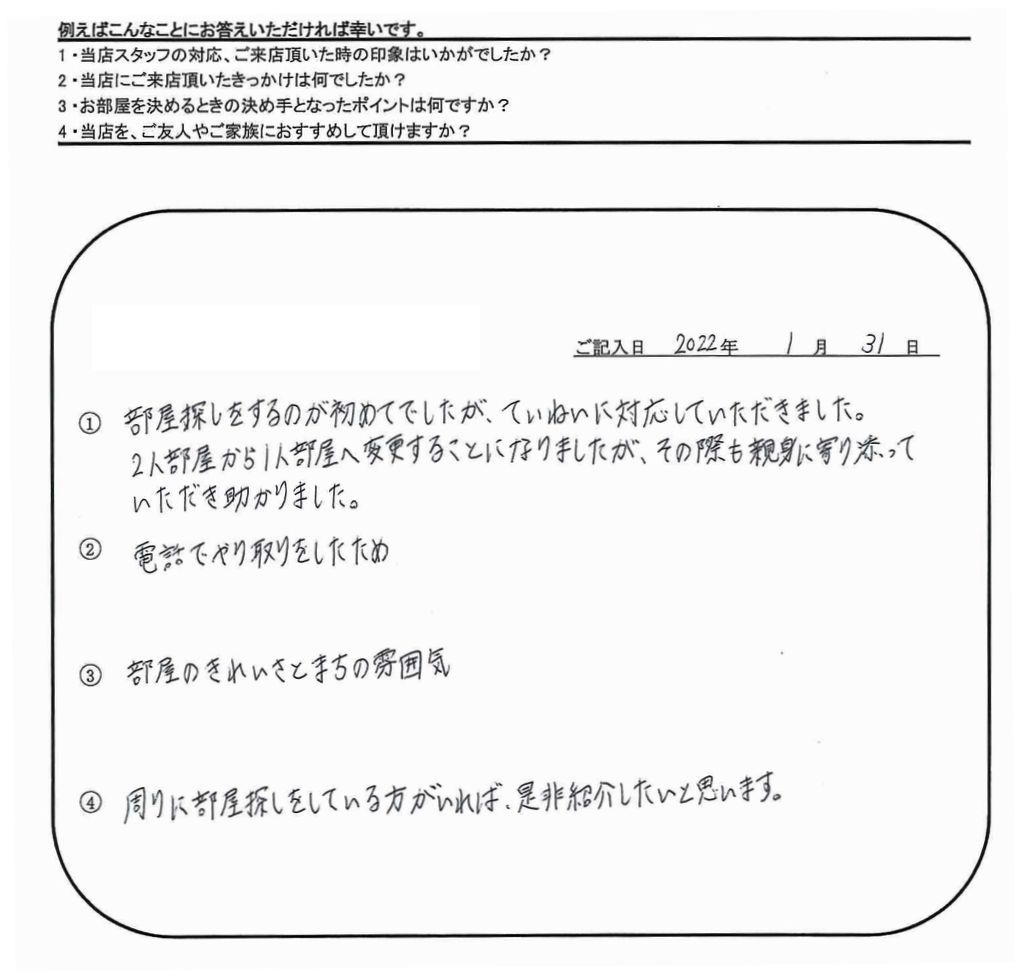 例えばこんなことにお答えいただければ幸いです。
1・当店スタッフの対応、ご来店頂いた時の印象はいかがでしたか？
2・当店にご来店頂いたきっかけは何でしたか？
3・お部屋を決めるときの決め手となったポイントは何ですか？
4・当店を、ご友人やご家族におすすめして頂けますか？
ご記入日 2022年 1月 31日
① 部屋探しをするのが初めてでしたが、ていねいに対応していただきました。
2人部屋から1人部屋へ変更することになりましたが、その際も親身に寄り添って
いただき助かりました。
② 電話でやり取りをしたため
③ 部屋のきれいさとまちの雰囲気
④ 周りに部屋探しをしている方がいれば、是非紹介したいと思います。